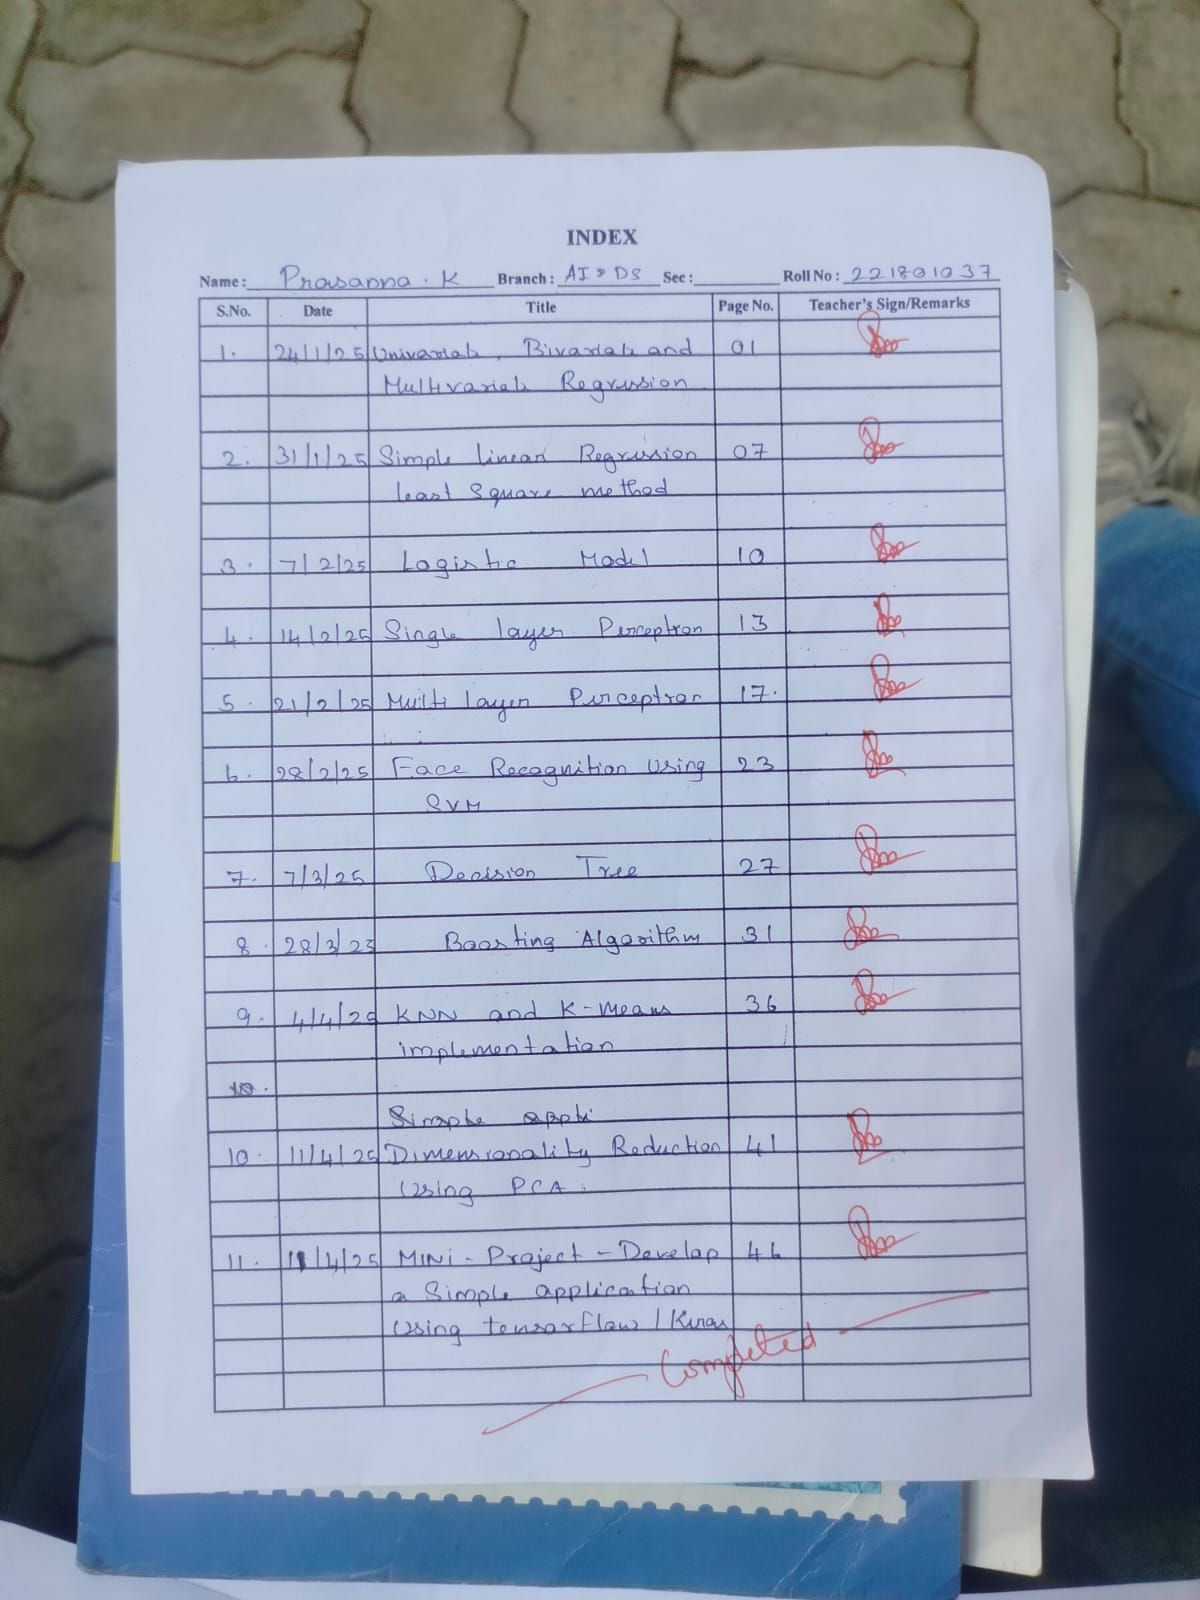 INDEX
Name: Prasanna . K Branch: AI & DS Sec: Roll No: 221801037
S.No. Date Title Page No. Teacher's Sign/Remarks
1. 24/1/25 Univariate, Bivariate and 01
Multivariate Regression
2. 31/1/25 Simple linear Regression 07
least Square method
3. 7/2/25 Logistic Model 10
4. 14/2/25 Single layer Perceptron 13
5. 21/2/25 Multi layer Perceptron 17.
6. 28/2/25 Face Recognition Using 23
SVM
7. 7/3/25 Decision Tree 27
8. 28/3/25 Boosting Algorithm 31
9. 4/4/25 KNN and K-Means 36
implementation
10.
Simple appli
10. 11/4/25 Dimensionality Reduction 41
Using PCA.
11. 11/4/25 MINI-Project - Develop
a Simple application
Using tensorflow / Keras
Completed